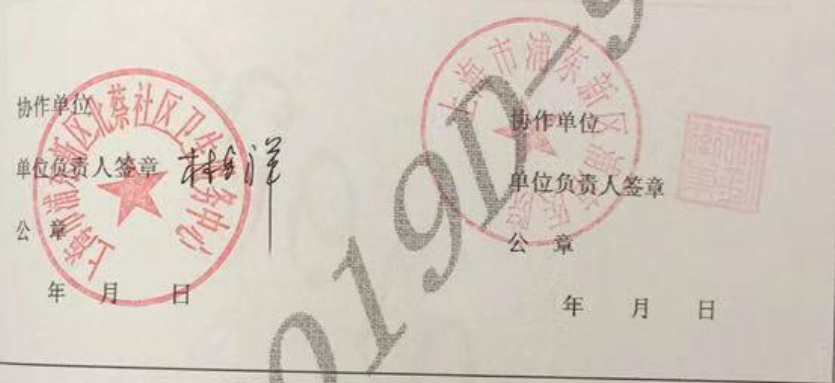 协作单位
单位负责人签章
公 章
年 月 日
上海市浦东新区北蔡社区卫生服务中心
协作单位
单位负责人签章
公 章
年 月 日
上海市浦东新区浦南医院
019D-9